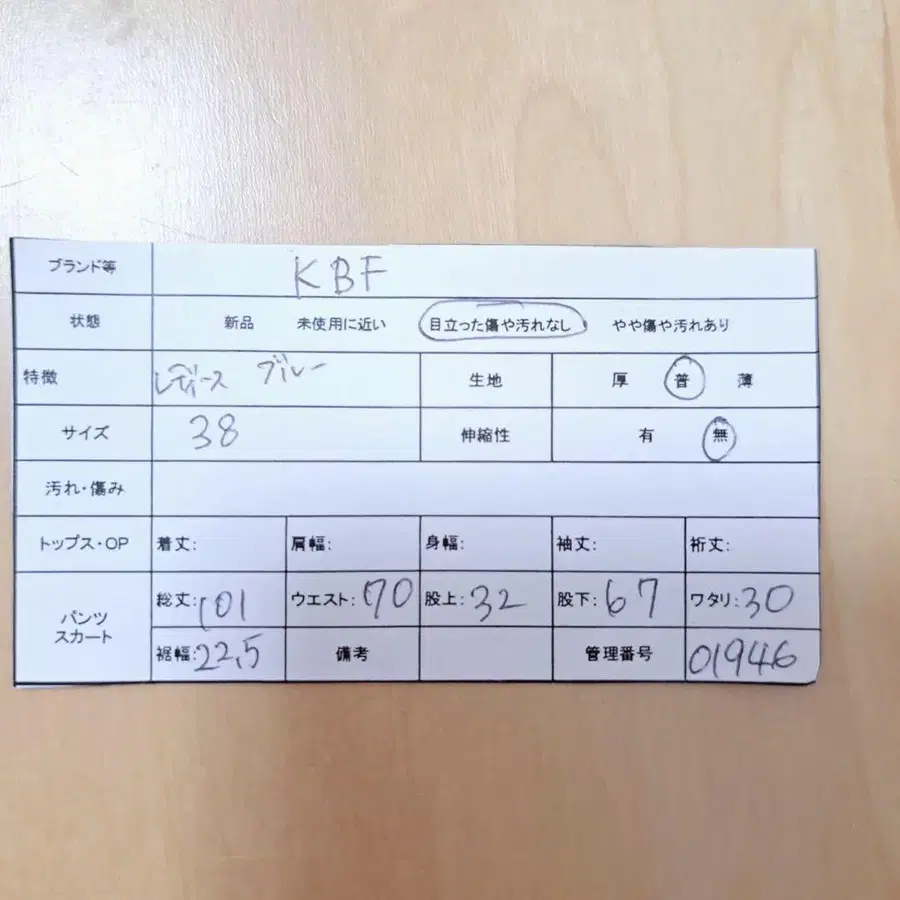 ブランド等 KBF
状態 新品 未使用に近い 目立った傷や汚れなし やや傷や汚れあり
特徴 レディース ブルー 生地 厚 普 薄
サイズ 38 伸縮性 有 無
汚れ・傷み
トップス・OP 着丈: 肩幅: 身幅: 袖丈: 裄丈:
パンツ
スカート
総丈:101 ウエスト:70 股上:32 股下:67 ワタリ:30
裾幅:22.5 備考 管理番号 01946